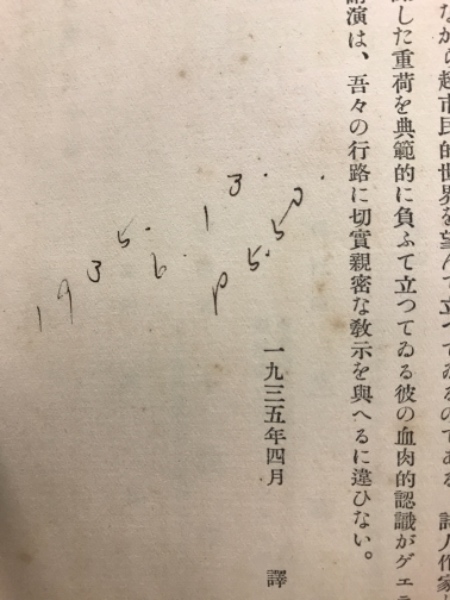 ながら超市民的世界を望んで立つてゐるのである。詩人作家
した重荷を典範的に負ふて立つてゐる彼の血肉的認識がゲエテ
講演は、吾々の行路に切實親密な教示を與へるに違ひない。
一九三五年四月
譯
1935. 6. 13.
P 5.50.